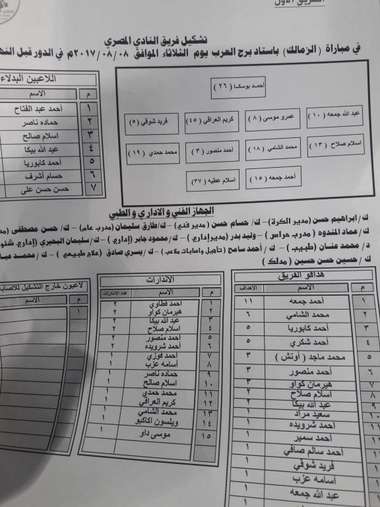 الفريق الأول
تشكيل فريق النادي المصري
في مباراة ( الزمالك ) باستاد برج العرب يوم الثلاثاء الموافق ٢٠١٧/٠٨/٠٨م في الدور قبل
أحمد بوسكا ( ٢٦ )
عبد الله جمعه ( ١٠ ) عمرو موسى ( ٨ ) كريم العراقي ( ٤٥ ) فريد شوقي ( ٥ )
اسلام صلاح ( ١٣ ) محمد الشامي ( ١٨ ) أحمد منصور ( ٣ ) محمد حمدي ( ١٩ )
أحمد جمعه ( ١٥ ) اسلام عطيه ( ٣٧ )
اللاعبين البدلاء
م الاسم
١ أحمد عبد الفتاح
٢ حماده ناصر
٣ اسلام صالح
٤ عبد الله بيكا
٥ أحمد كابوريا
٦ حسام أشرف
٧ حسن حسن على
الجهاز الفني والاداري و الطبي
ك/ ابراهيم حسن (مدير الكرة) – ك/ حسام حسن (مدير فني) – ك/ طارق سليمان (مدرب عام) – ك/ حسن مصطفى
ك/ عماد المندوه (مدرب حراس) – وليد بدر (مدير اداري) – محمود جابر (اداري) – سليمان البحيري (اداري)
د. محمد عنسان (طبيب) – ك/ أحمد سامح (تأهيل واصابات ملاعب) – ك/ يسري صادق (علاج طبيعي) – ك/ محمد
ك/ حسين حسن حسين ( مدلك )
هدافو الفريق
م الاسم الأهداف
١ أحمد جمعه ١١
٢ محمد الشامي ٦
٣ أحمد كابوريا ٥
٤ أحمد شكري ٥
٥ محمد ماجد ( أونش ) ٣
٦ أحمد منصور ٣
٧ هيرمان كواو ٢
٨ اسلام صلاح ٢
٩ عبد الله بيكا
سعيد مراد
أحمد شرويده
أحمد سمير
أحمد سالم صافي
فريد شوقي
أسامه عزب
عبد الله جمعه
الانذارات
م الاسم عدد الانذارات
١ أحمد قطاوي ٢
٢ هيرمان كواو ٢
٣ عبد الله بيكا ٢
٤ اسلام صلاح ٢
٥ أحمد منصور ٢
٦ أحمد شرويده ٢
٧ أحمد فوزي ١
٨ أسامه عزب ١
٩ حماده ناصر ١
١٠ اسلام صالح ١
١١ محمد حمدي ١
١٢ كريم العراقي ١
١٣ محمد الشامي ١
١٤ ويلسون أكاكبو ١
١٥ موسى داو ١
لاعبون خارج التشكيل للاصابة
م الاسم
١